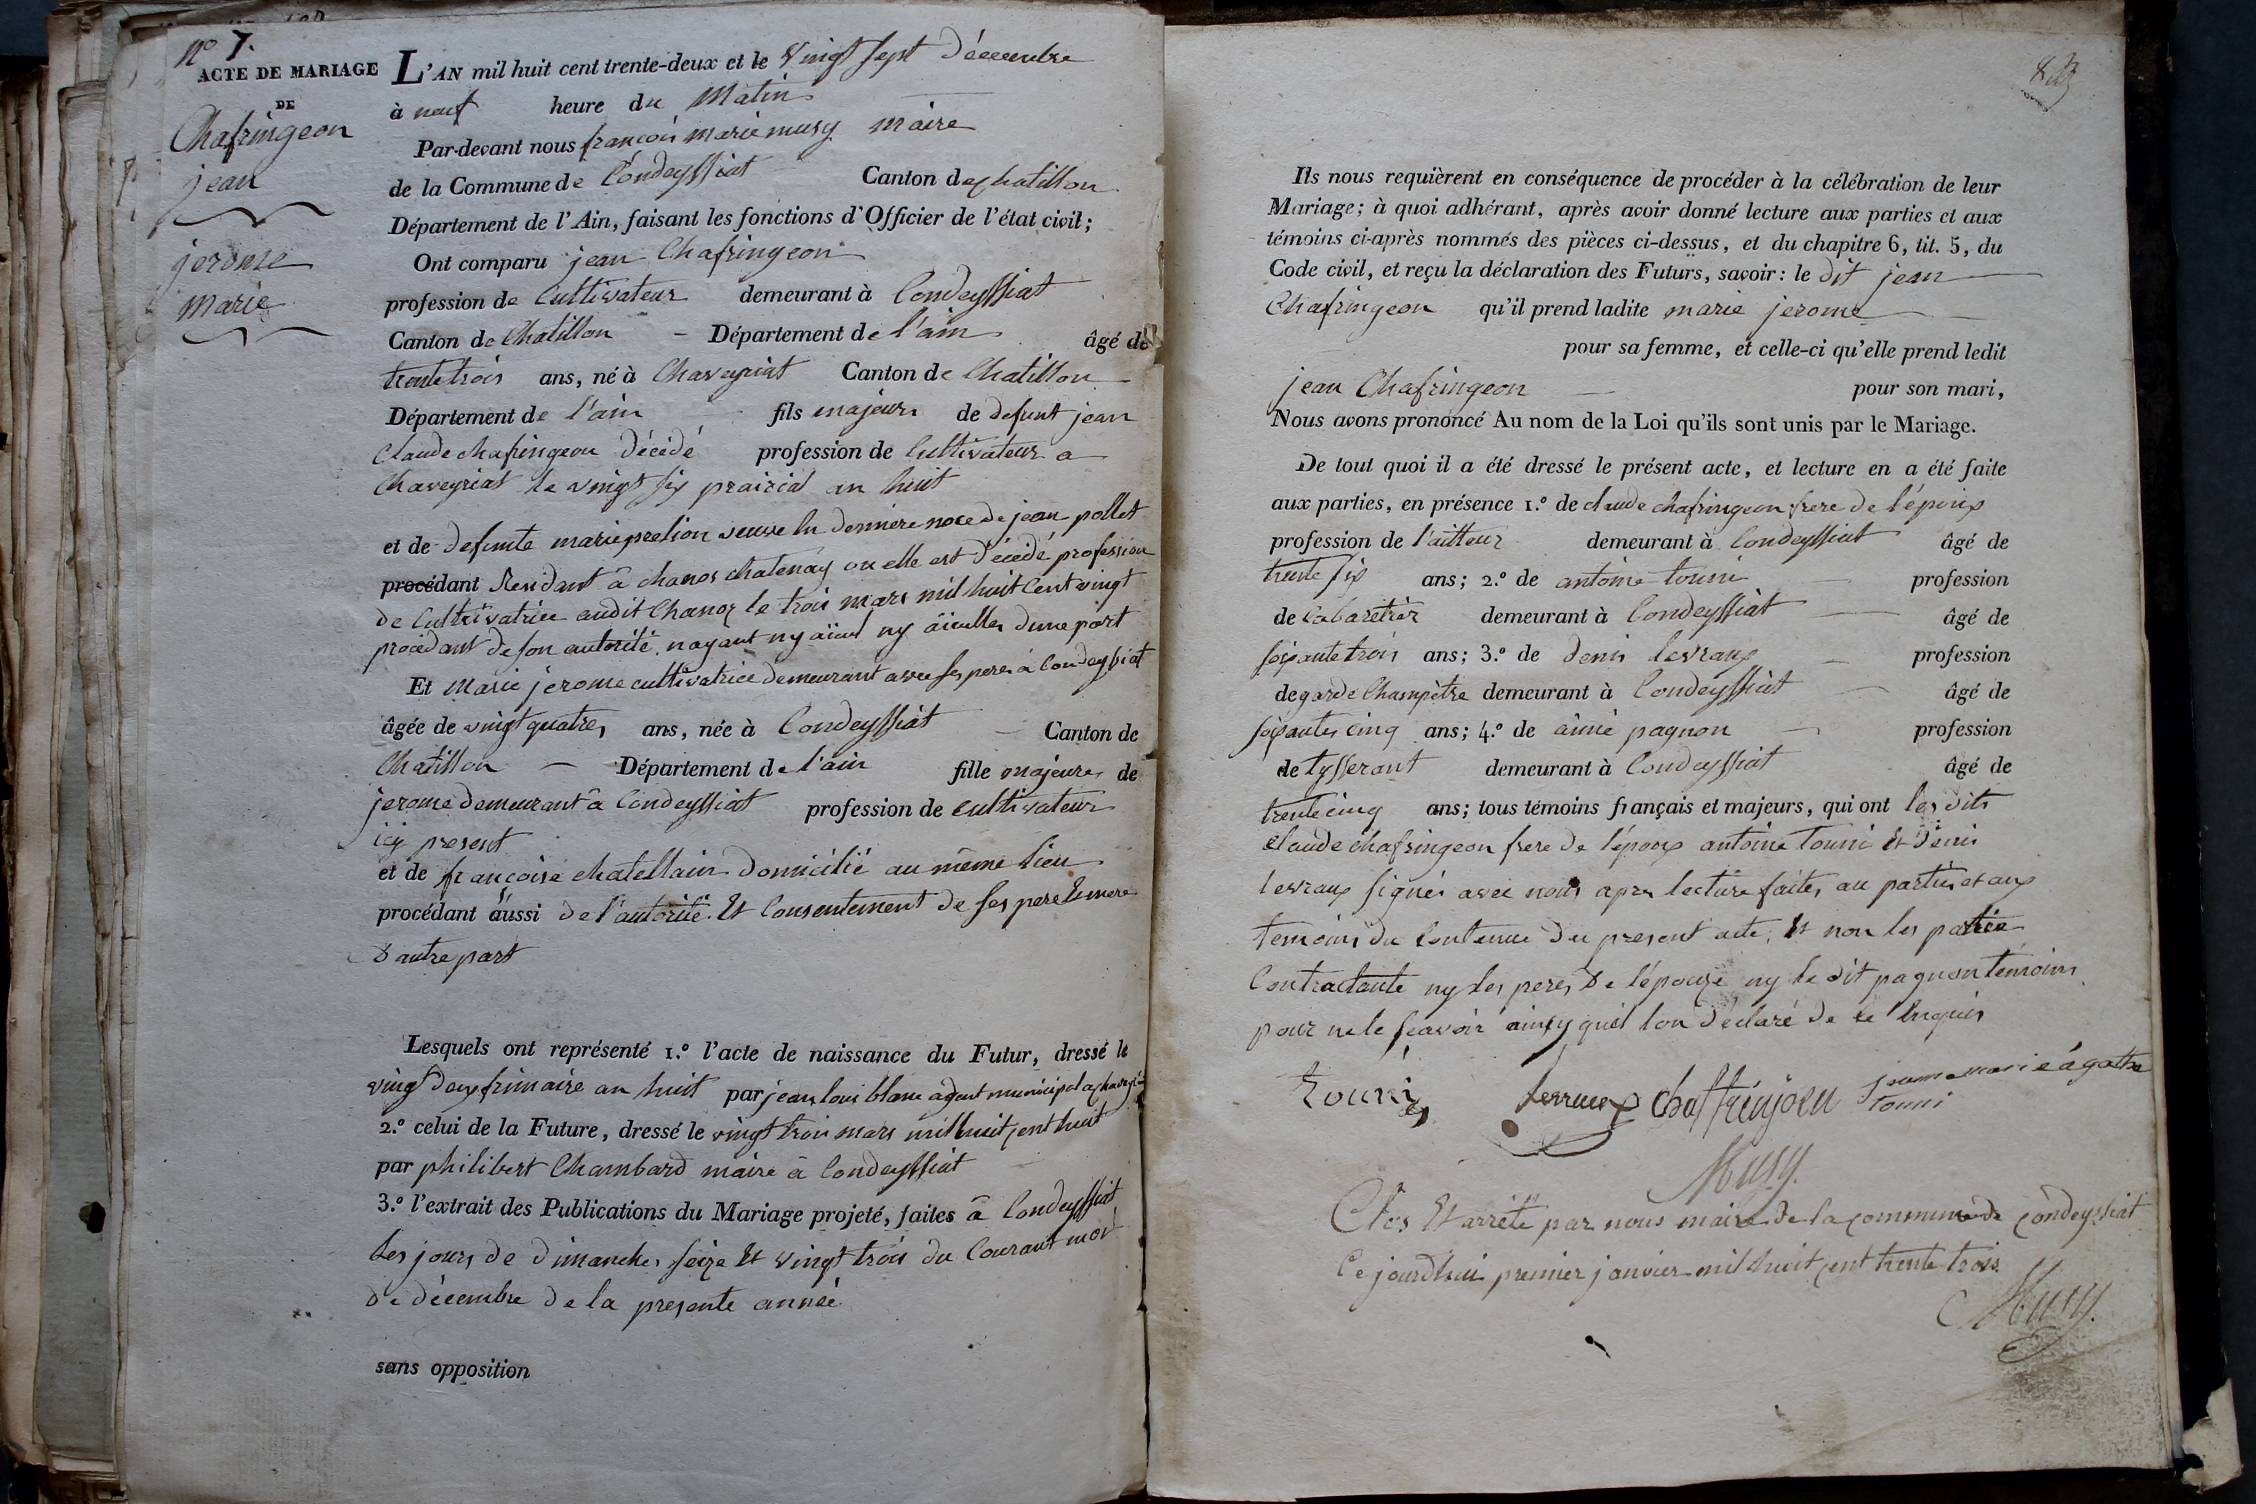 nº 7.
ACTE DE MARIAGE
DE
Chafringeon
jean
jerome
marie
L'AN mil huit cent trente-deux et le vingt sept décembre
à neuf heure du matin
Par-devant nous françois marie musy maire
de la Commune de Condeyssiat Canton de chatillon
Département de l'Ain, faisant les fonctions d'Officier de l'état civil;
Ont comparu jean Chafringeon
profession de Cultivateur demeurant à Condeyssiat
Canton de Chatillon Département de l'ain âgé de
trente trois ans, né à Chaveyriat Canton de Chatillon
Département de l'ain fils majeur de defunt jean
Claude chafringeon décédé profession de Cultivateur a
Chaveyriat le vingt six prairial an huit
et de defunte marie prelion veuve en derniere noce de jean pollet
procédant Residant à chanoz chatenay ou elle est décédé profession
de Cultivatrice audit Chanoz le trois mars mil huit Cent vingt
procedant de son autorité nayant ny aïeul ny aïeulles dune part
Et Marie jerome cultivatrice demeurant avec ses peres à Condeyssiat
âgée de vingt quatre ans, née à Condeyssiat Canton de
Chatillon Département de l'ain fille majeure de
jerome demeurant à Condeyssiat profession de cultivateur
icy present
et de françoise chatellain domicilié au même lieu
procédant aussi de l'autorité Et Consentement de ses pere Et mere
d'autre part
Lesquels ont représenté 1.º l'acte de naissance du Futur, dressé le
vingt deux frimaire an huit par jean loui blanc agent municipal a
2.º celui de la Future, dressé le vingt trois mars mil huit cent huit
par philibert Chambard maire à Condeyssiat
3.º l'extrait des Publications du Mariage projeté, faites à Condeyssiat
les jours de dimanches seize Et vingt trois du Courant moi
de décembre de la presente année
sans opposition
Ils nous requièrent en conséquence de procéder à la célébration de leur
Mariage; à quoi adhérant, après avoir donné lecture aux parties et aux
témoins ci-après nommés des pièces ci-dessus, et du chapitre 6, tit. 5, du
Code civil, et reçu la déclaration des Futurs, savoir: le dit jean
Chafringeon qu'il prend ladite marie jerome
pour sa femme, et celle-ci qu'elle prend ledit
jean Chafringeon pour son mari,
Nous avons prononcé Au nom de la Loi qu'ils sont unis par le Mariage.
De tout quoi il a été dressé le présent acte, et lecture en a été faite
aux parties, en présence 1.º de claude chafringeon frere de l'époux
profession de tailleur demeurant à Condeyssiat âgé de
trente six ans; 2.º de antoine touni profession
de Cabaretier demeurant à Condeyssiat âgé de
soixante trois ans; 3.º de denis levraux profession
de garde Champêtre demeurant à Condeyssiat âgé de
soixantes cinq ans; 4.º de aimé pagnon profession
de tysserant demeurant à Condeyssiat âgé de
trente cinq ans; tous témoins français et majeurs, qui ont les dits
claude chafringeon frere de l'époux antoine touni Et denis
levraux signés avec nous apres lecture faites au parties et aux
temoins du Contenue du present acte, Et non les partie
Contractante ny les peres de l'épouze ny le dit pagnon temoins
pour ne le scavoir ainsy quil lon déclaré de ce Enquis
touni levraux Chaffringeon jeanne marie agathe
touni
Musy.
Clos Et arrêté par nous maire de la commune de Condeyssiat
Ce jourdhui premier janvier mil huit cent trente trois
Musy.